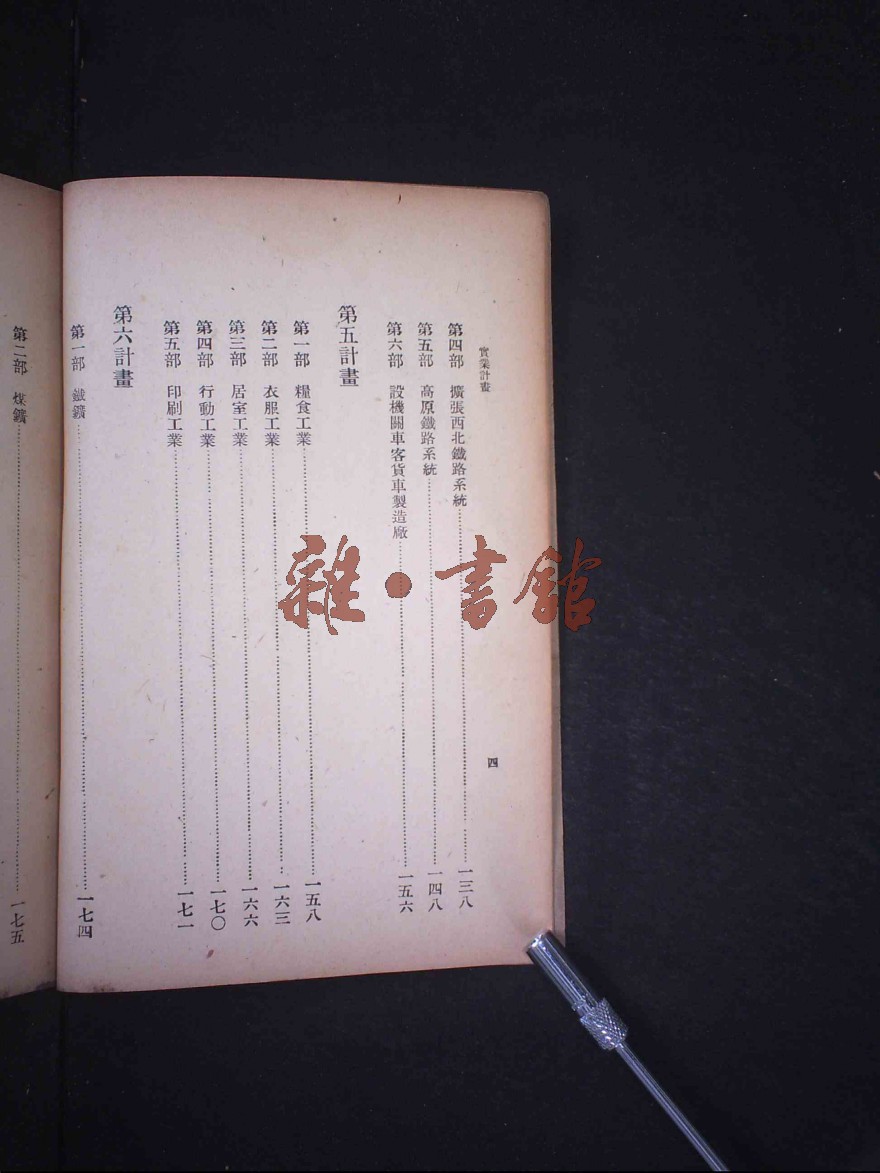 實業計畫
四
第四部 擴張西北鐵路系統……一三八
第五部 高原鐵路系統……一四八
第六部 設機關車客貨車製造廠……一五六
第五計畫
第一部 糧食工業……一五八
第二部 衣服工業……一六三
第三部 居室工業……一六六
第四部 行動工業……一七〇
第五部 印刷工業……一七一
第六計畫
第一部 鐵鑛……一七四
第二部 煤鑛……一七五
雜·書館